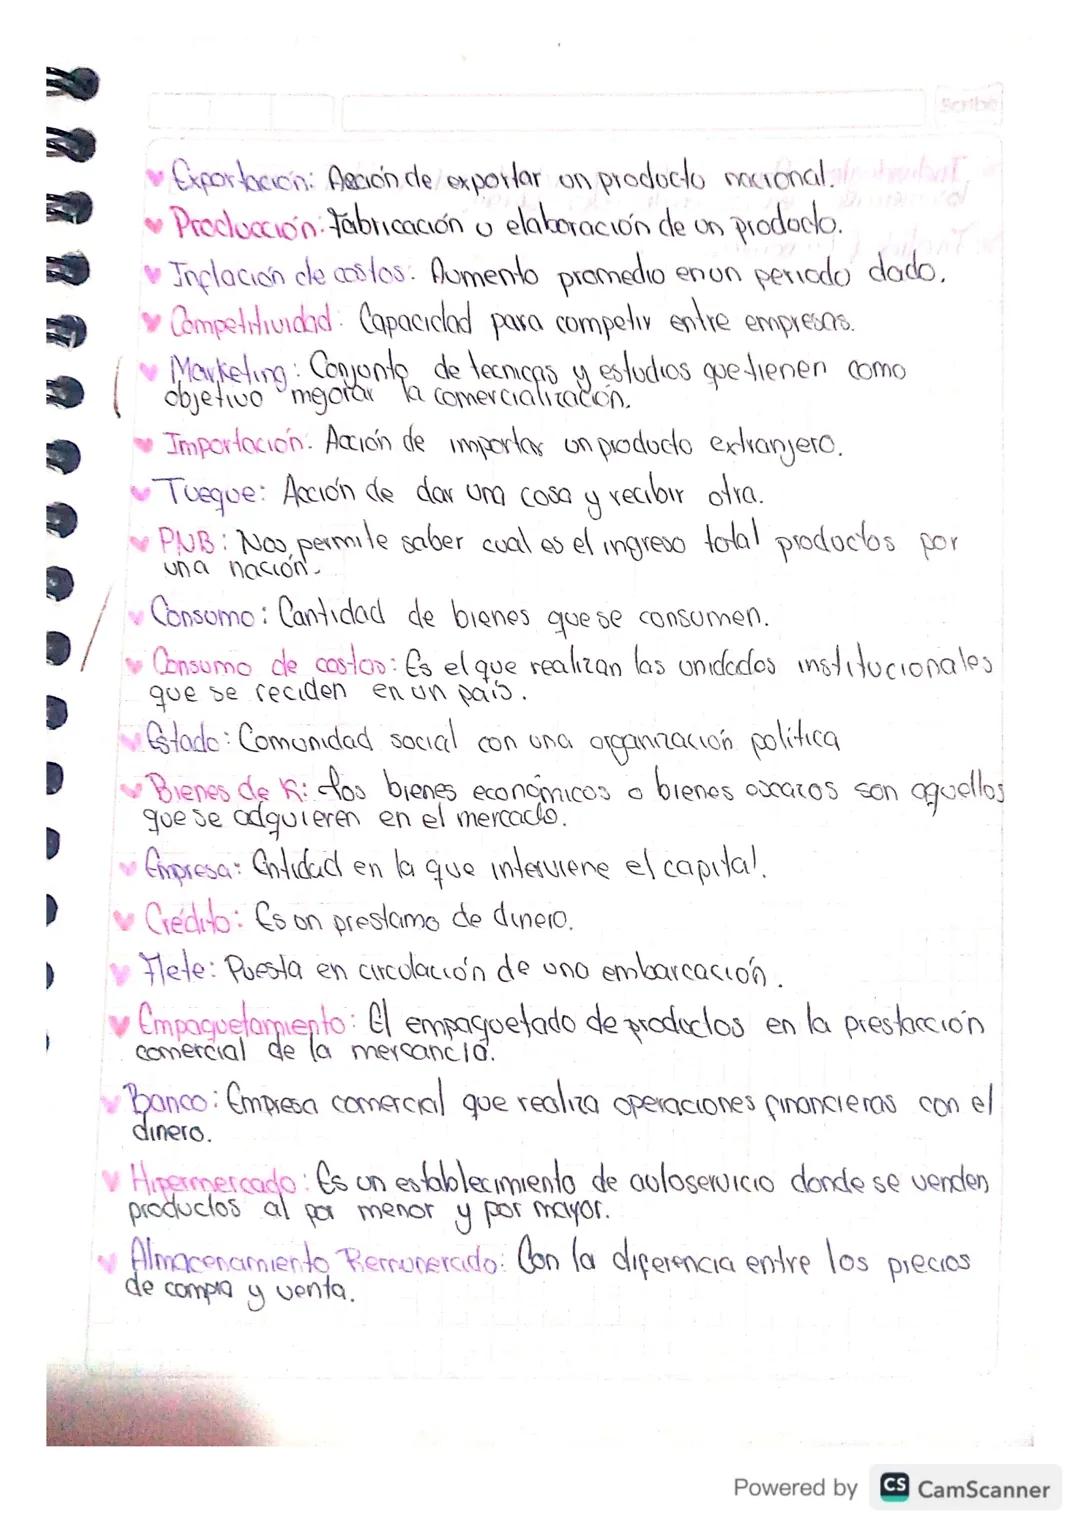 Scribe
Exportación: Acción de exportar un producto nacional.
Producción: Fabricación u elaboración de un producto.
Inflación de costos: Aumento promedio en un periodo dado.
Competitividad: Capacidad para competir entre empresas.
Marketing: Conjunto de tecnicas y estudios que tienen como
objetivo mejorar la comercialización.
Importación: Acción de importar un producto extranjero.
Tueque: Acción de dar una cosa y recibir otra.
PNB: Nos permite saber cual es el ingreso total productos por
una nación.
Consumo: Cantidad de bienes que se consumen.
Consumo de costos: Es el que realizan las unidades institucionales
que se reciden en un país.
Estado: Comunidad social con una organización política
Bienes de K: Los bienes económicos o bienes escazos son aquellos
que se adquieren en el mercado.
Empresa: Entidad en la que interviene el capital.
Crédito: Es un prestamo de dinero.
Flete: Puesta en circulación de una embarcación.
Empaquetamiento: El empaquetado de productos en la prestacción
comercial de la mersancía.
Banco: Empresa comercial que realiza operaciones financieras con el
dinero.
Hipermercado: Es un establecimiento de autoservicio donde se venden
productos al por menor y por mayor.
Almacenamiento Remunerado: Con la diferencia entre los precios
de compra y venta.
Powered by CS CamScanner